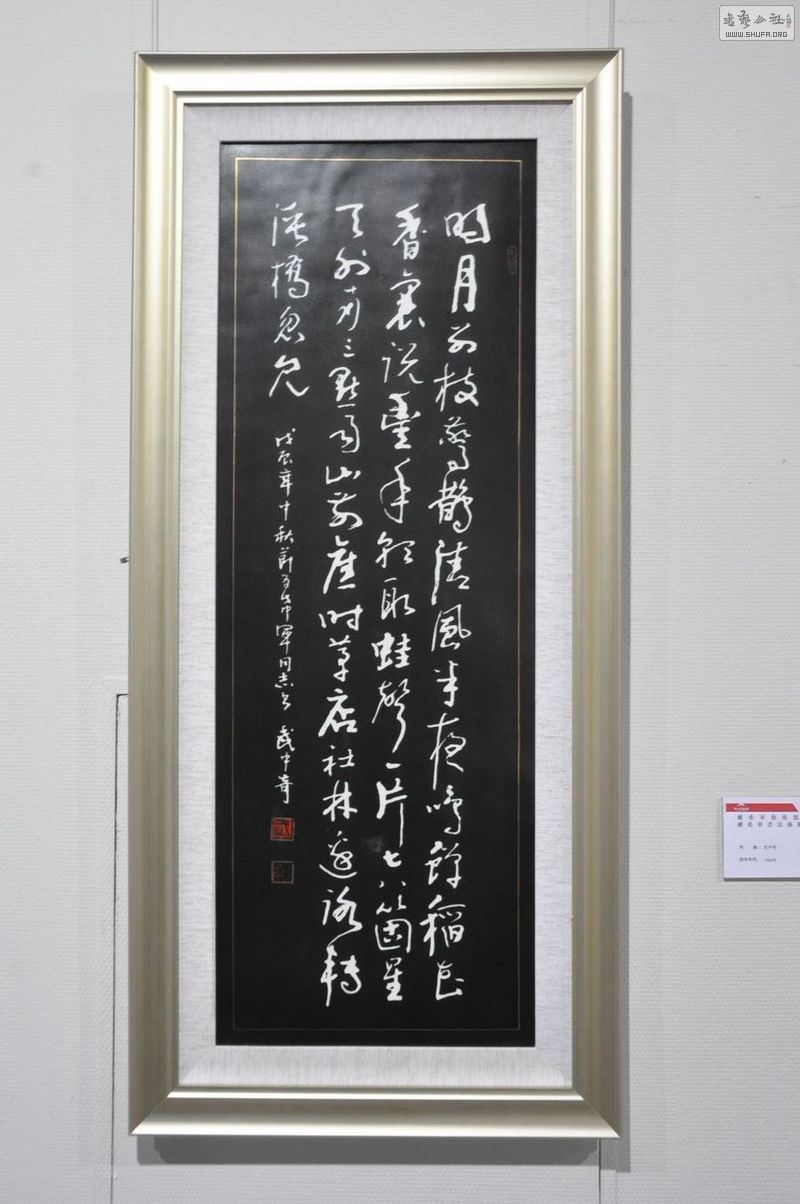 書藝公社
WWW.SHUFA.ORG
明月别枝驚鵲清風半夜鳴蟬稻花
香裏說豐年聽取蛙聲一片七八箇星
天外兩三點雨山前舊時茅店社林邊路轉
溪橋忽見
戊辰年中秋節为中軍同志书 武中奇